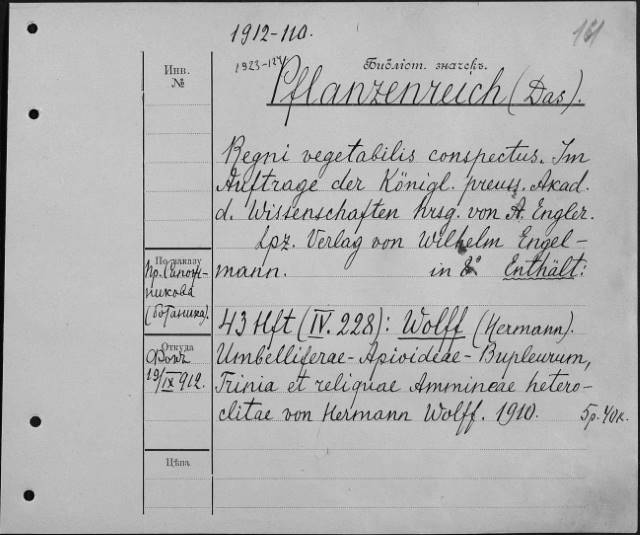 1912-110.
161
Инв.
№
1923-124
Библіот. значекъ.
Pflanzenreich (Das).
Regni vegetabilis conspectus. Im
Auftrage der Königl. preuss. Akad.
d. Wissenschaften hrsg. von A. Engler.
Lpz. Verlag von Wilhelm Engel-
mann. in 8° Enthält:
По заказу
пр.
никова
(ботаника).
43 Hft (IV. 228): Wolff (Hermann).
Umbelliferae-Apioideae-Bupleurum,
Trinia et reliquae Ammineae hetero-
clitae von Hermann Wolff. 1910. 5р. 40к.
Откуда
19/IX 912.
Цѣна